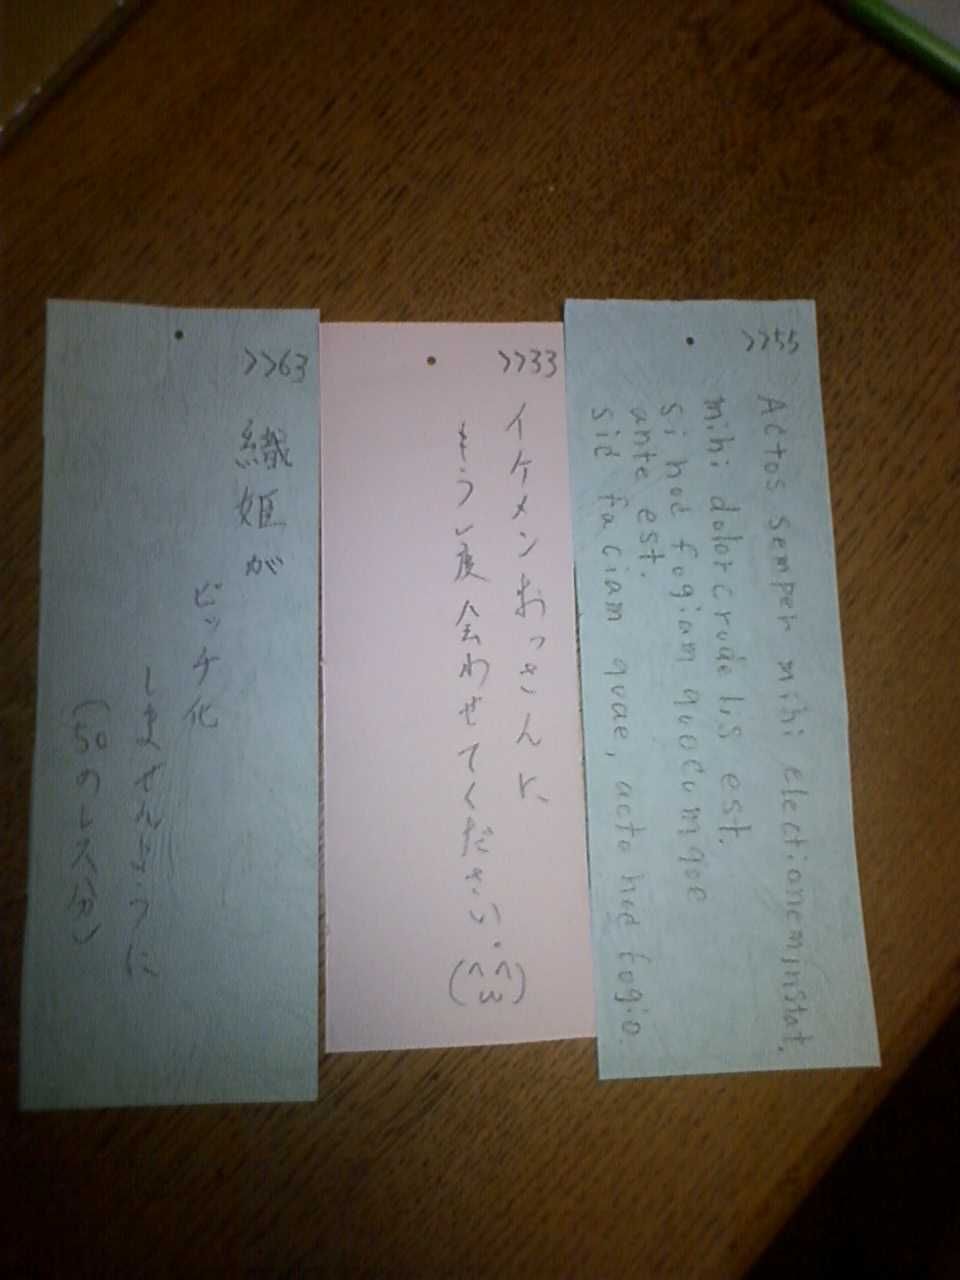 >>55
Actos semper mihi electioneminstat.
mihi dolorcrudelis est.
si hod fogiam quocumqoe
ante est.
sid faciam quae, acto hod fogio.
>>33
イケメンおっさんに、
もう一度会わせてください。
(^ω^)
>>63
織姫が
ビッチ化
しませんように
(50のレス分)